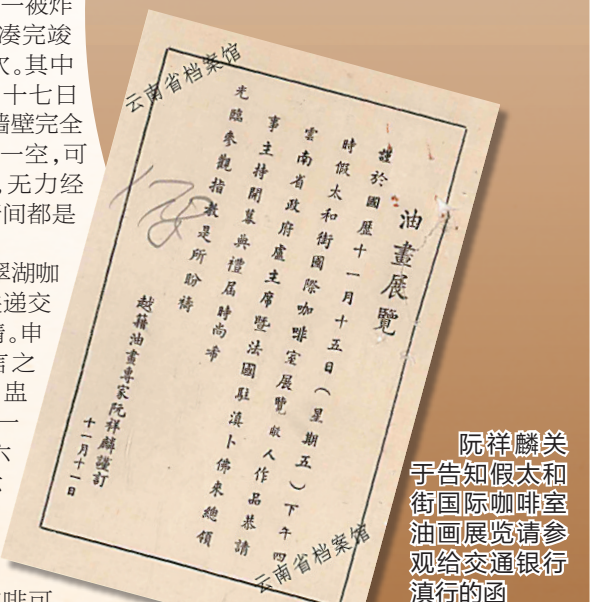 一被炸
凑完竣
次。其中
十七日
墙壁完全
一空，可
无力经
间都是
翠湖咖
递交
情。申
言之
蛊
一
六
云南省档案馆
油畫展覽
謹於國歷十一月十五日（星期五）下午四
時假太和街國際咖啡室展覽 鄙人作品恭請
雲南省政府盧主席暨法國駐滇卜佛來總領
事主持開幕典禮屆時尚希
光臨參觀指教是所盼禱
越籍油畫專家阮祥麟謹訂
十一月十一日
云南省档案馆
阮祥麟关
于告知假太和
街国际咖啡室
油画展览请参
观给交通银行
滇行的函
啡可